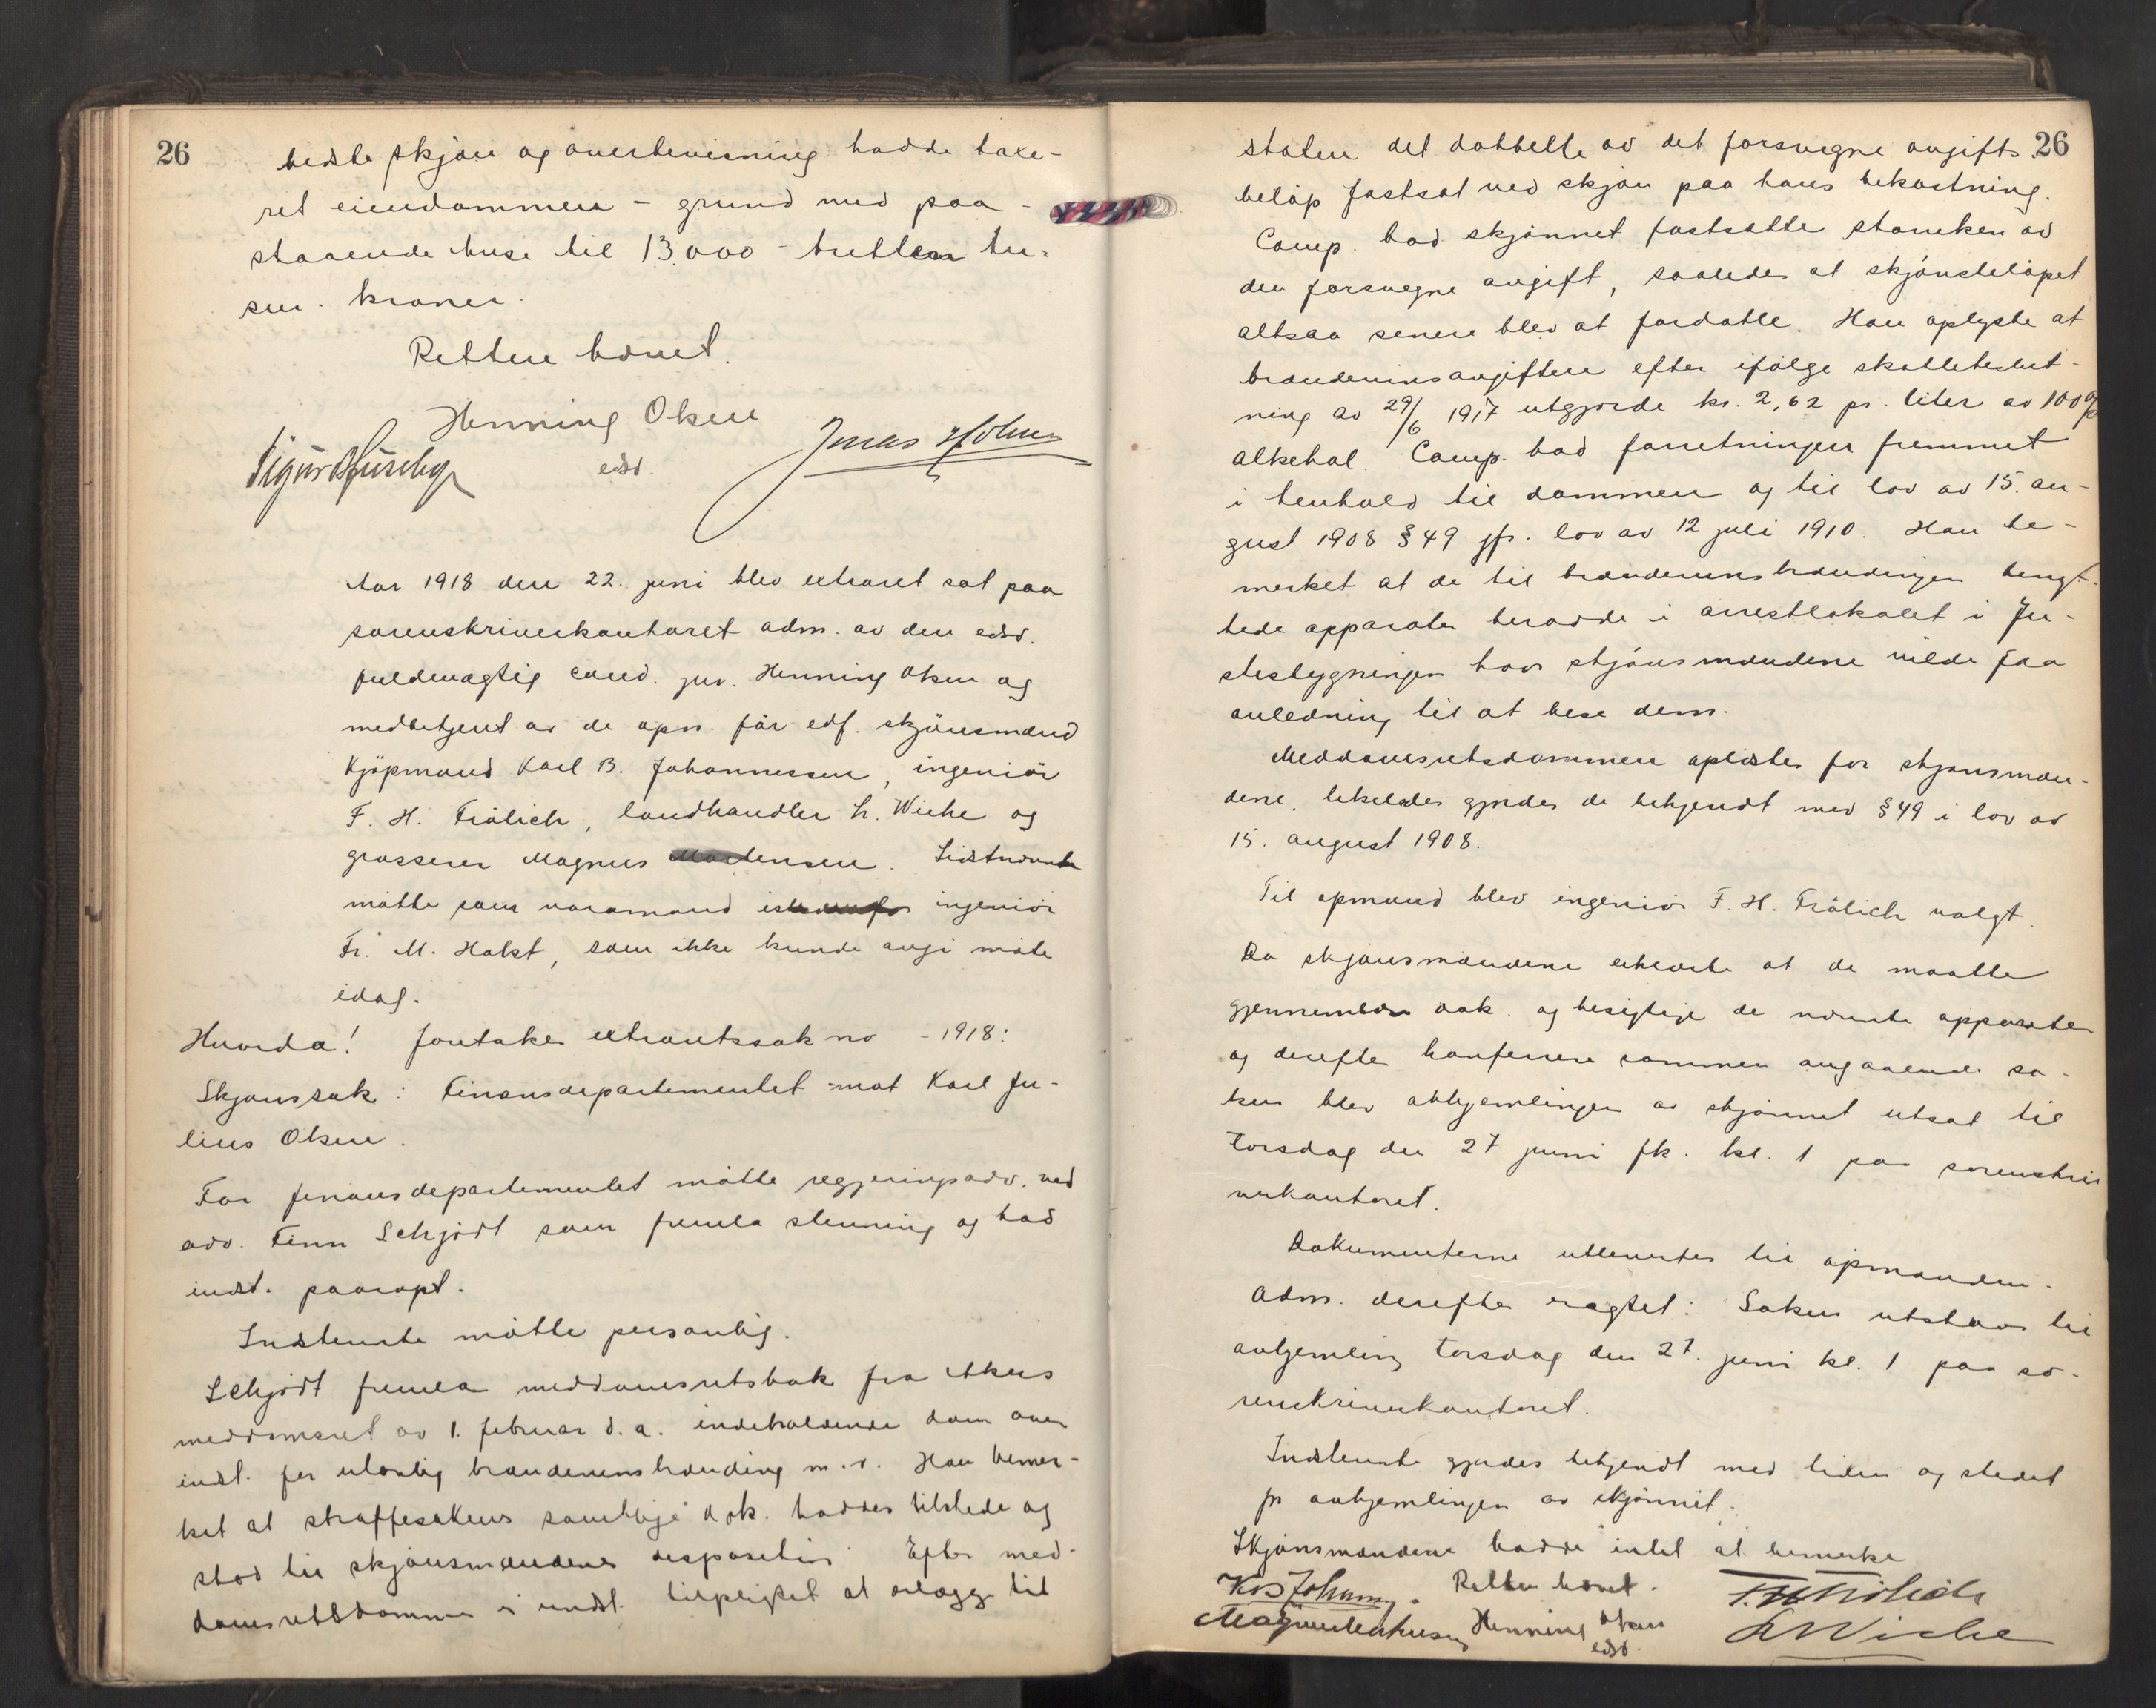 26
bedste skjøn og overbevisning hadde taxe-
ret eiendommen - grund med paa-
staaende huse til 13.000 - tretten tu-
sen - kroner.
Retten hævet.
Henning Olsen
edsv.
Sigurd Huseby
Jonas Holm
Aar 1918 den 22. juni blev extraret sat paa
sorenskriverkontoret adm. av den edsv.
fuldmægtig cand. jur. Henning Olsen og
medbetjent av de opn. før edf. skjönsmænd
Kjöpmand Karl B. Johannessen, ingeniör
F. H. Frölich, landhandler L. Wiche og
grosserer Magnus Martensen. Sidstnævnte
mötte som varamand istedenfor ingeniör
Fr. M. Holst, som ikke kunde avgi möte
idag.
Hvorda! foretakes extraretssak no - 1918:
Skjønssak: Finansdepartementet mot Karl Ju-
lius Olsen.
For finansdepartementet mötte regjeringsadv. ved
adv. Finn Schjödt som fremla stevning og bad
indst. paaropt.
Indstevnte mötte personlig.
Schjödt fremla meddomsretsbok fra Akers
meddomsret av 1. februar d. a. indeholdende dom over
indst. for ulovlig brændevinsbrænding m. v. Han bemer-
ket at straffesakens samtlige dok. haddes tilstede og
stod til skjönsmændenes disposition. Efter med-
domsretsdommen er indst. tilpligtet at erlægge til
26
staten det dobbelte av det forsvegne avgifts-
beløp fastsat ved skjøn paa hans bekostning.
Comp. bad skjønnet fastsætte størrelsen av
den forsvegne avgift, saaledes at skjönsbelöpet
altsaa senere blev at fordoble. Han oplyste at
brændevinsavgiften efter ifölge skattebeslut-
ning av 29/6 1917 utgjorde kr. 2,62 pr. liter av 100%
alkohol. Comp. bad forretningen fremmet
i henhold til dommen og til lov av 15. au-
gust 1908 § 49 jfr. lov av 12 juli 1910. Han be-
merket at de til brændevinsbrændingen beng-
tede apparater beroede i arrestlokalet i Ju-
stisbygningen hvor skjönsmændene vilde faa
anledning til at bese dem.
Meddomsretsdommen oplæstes for skjønsmæn-
dene, likeledes gjordes de bekjendt med § 49 i lov av
15. august 1908.
Til opmand blev ingeniör F. H. Frölich valgt.
Da skjønsmændene erklærte at de maatte
gjennemlæse dok. og besigtige de nævnte apparater
og derefter konferere sammen angaaende sa-
ken blev avhjemlingen av skjønnet utsat til
torsdag den 27 juni fk. kl. 1 paa sorenskri-
verkontoret.
Dokumenterne utlevertes til opmanden.
Adm. derefter eragtet: Saken utstaar til
avhjemling torsdag den 27. juni kl. 1 paa so-
renskriverkontoret.
Indstevnte gjordes bekjendt med tiden og stedet
for avhjemlingen av skjønnet.
Skjönsmændene hadde intet at bemerke
Retten hævet.
KB Johannessen
F. H. Frölich
Magnus Martensen
Henning Olsen
edsv.
L Wiche